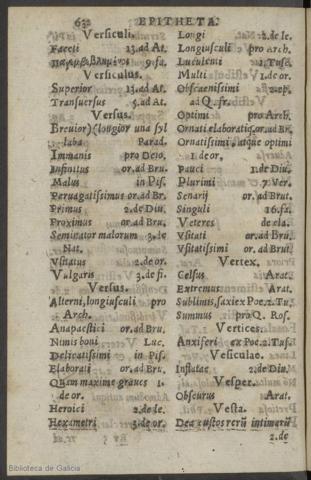 632 EPITHETA.
Versiculi.
Faceti 13.ad At.
παρεμβεβλημένοι 9.fa.
Versiculus.
Superior 13.ad At.
Transuersus 5.ad At.
Versus.
Breuior)(longior una syl
laba Parad.
Immanis pro Deio.
Infinitus or.ad Br.
Malus in Pis.
Peruagatissimus or.ad Br.
Primus 2.de Diu.
Proximus or.ad Bru.
Seminator malorum 3.de
Nat.
Vsitatus 2.de or.
Vulgaris 3.de fi.
Versus.
Alterni, longiusculi pro
Arch.
Anapaestici or.ad Bru.
Nimis boni Luc.
Delicatissimi in Pis.
Elaborati or.ad Bru.
Quam maxime graues 1.
de or.
Heroici 2.de le.
Hexametri 3.de or.
Longi 2.de le.
Longiusculi pro arch.
Luculenti 1.Tusc.
Multi 1.de or.
Obscaenissimi 2.ep.
ad Q.fr.
Optimi pro Arch.
Ornati elaboratiq; or.ad Br.
Ornatissimi, atque optimi
1.de or.
Pauci 1.de Diu.
Plurimi 7.Ver.
Senarij or.ad Brut.
Singuli 16.fa.
Veteres de cla.
Vsitati or.ad Bru.
Vsitatissimi or.ad Brut.
Vertex.
Celsus Arat.
Extremus Arat.
Sublimis, sax ex Poe.2.Tu.
Summus pro Q. Ros.
Vertices.
Anxiferi ex Poe.2.Tus.
Vesiculae.
Inflatae 2.de Diu.
Vesper.
Obscurus Arat.
Vesta.
Dea custos rerũ intimarũ
2.de
Biblioteca de Galicia